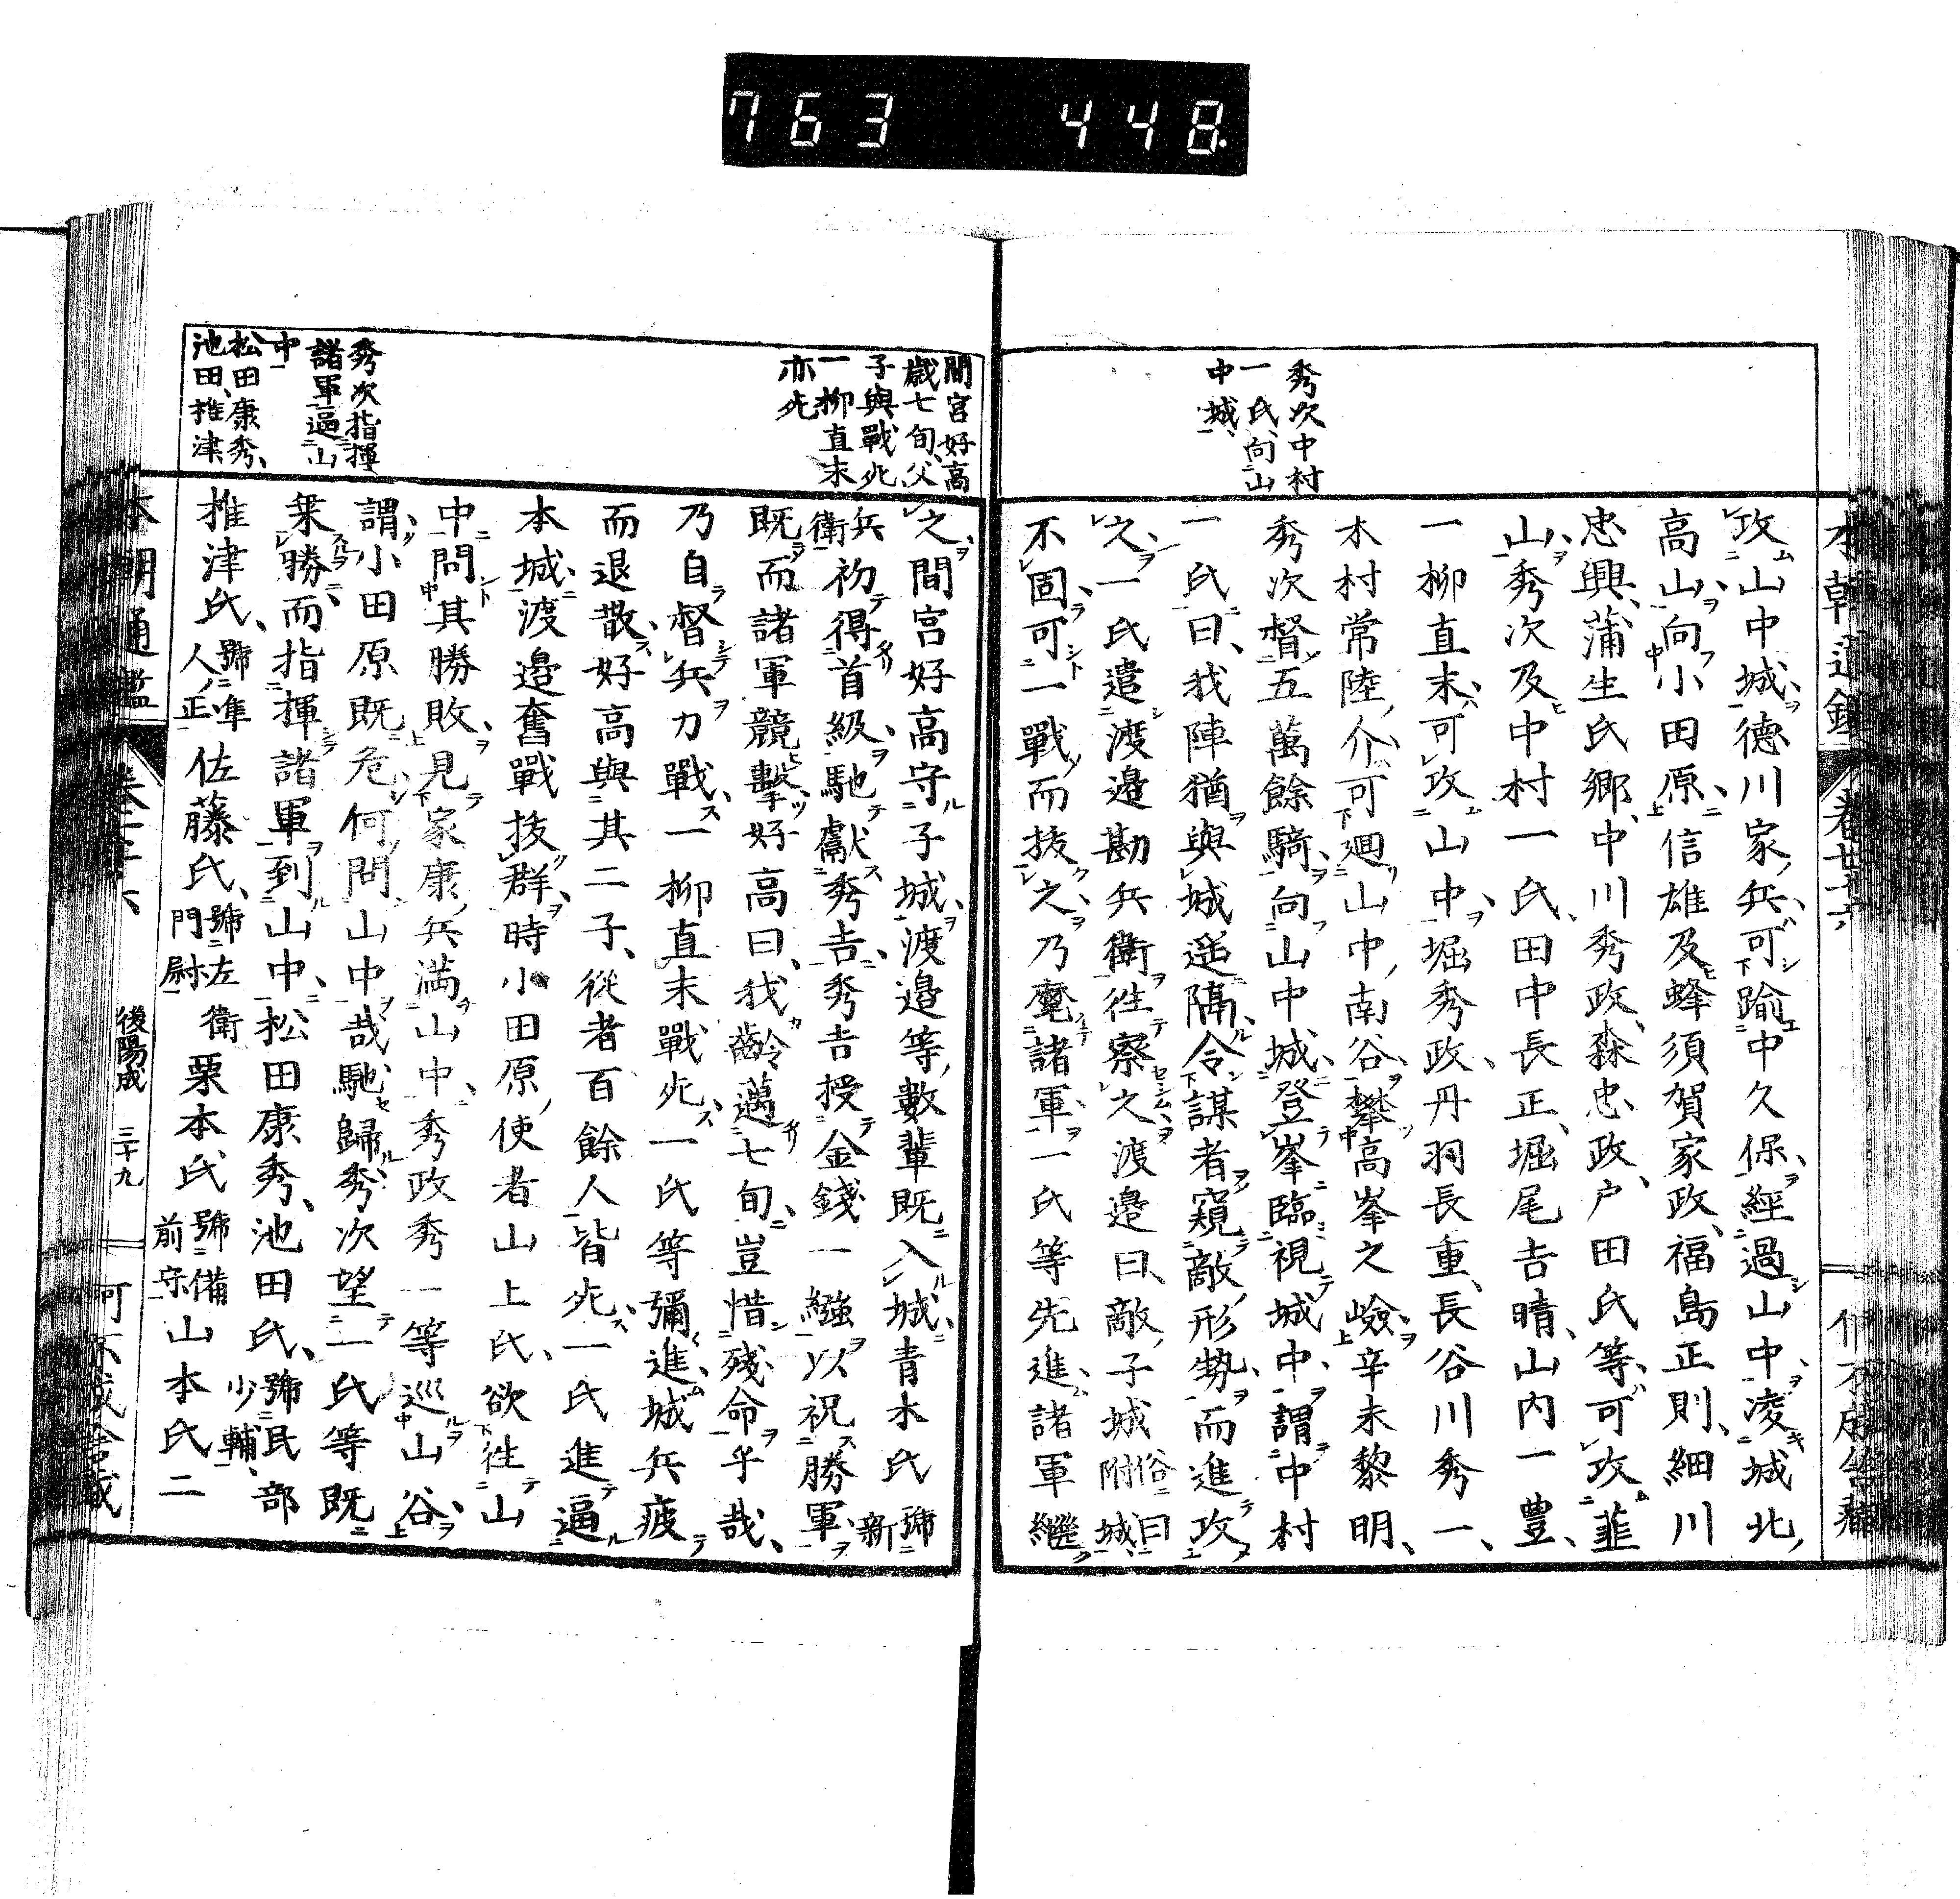 763 448.
秀次中村
一氏向山
中城
攻山中城德川家兵可踰中久保經過山中凌城北
高山向小田原信雄及蜂須賀家政福島正則細川
忠興蒲生氏鄉中川秀政森忠政戶田氏等可攻韮
山秀次及中村一氏田中長正堀尾吉晴山內一豊
一柳直末可攻山中堀秀政丹羽長重長谷川秀一
木村常陸介可廻山中南谷攀高峯之嶮辛未黎明
秀次督五萬餘騎向山中城登峯臨視城中謂中村
一氏曰我陣猶與城遥隔令謀者窺敵形勢而進攻
之一氏遣渡邉勘兵衛徃察之渡邉曰敵子城俗曰附城
不固可一戰而拔之乃麾諸軍一氏等先進諸軍繼
間宮好高
歲七旬父
子與戰死
一柳直末
亦死
秀次指揮
諸軍逼山
中
松田康秀
池田推津
之間宮好高守子城渡邉等數輩既入城青木氏號新
兵衛初得首級馳獻秀吉秀吉授金錢一繦以祝勝軍
既而諸軍競擊好高曰我齡邁七旬豈惜殘命乎哉
乃自督兵力戰一柳直末戰死一氏等彌進城兵疲
而退散好高與其二子從者百餘人皆死一氏進逼
本城渡邉奮戰拔群時小田原使者山上氏欲徃山
中問其勝敗見家康兵滿山中秀政秀一等巡山谷
謂小田原既危何問山中哉馳歸秀次望一氏等既
乗勝而指揮諸軍到山中松田康秀池田氏號民部少輔
推津氏號隼人正佐藤氏號左衛門尉栗本氏號備前守山本氏二
本朝通鑑
後陽成 三十九